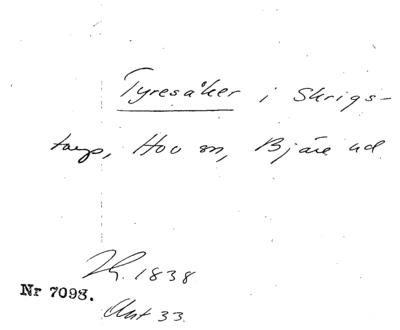 Tyresåker i Skrigs-
torp, Hov sn, Bjäre hd
1838
Nr 7098.
Ant 33.